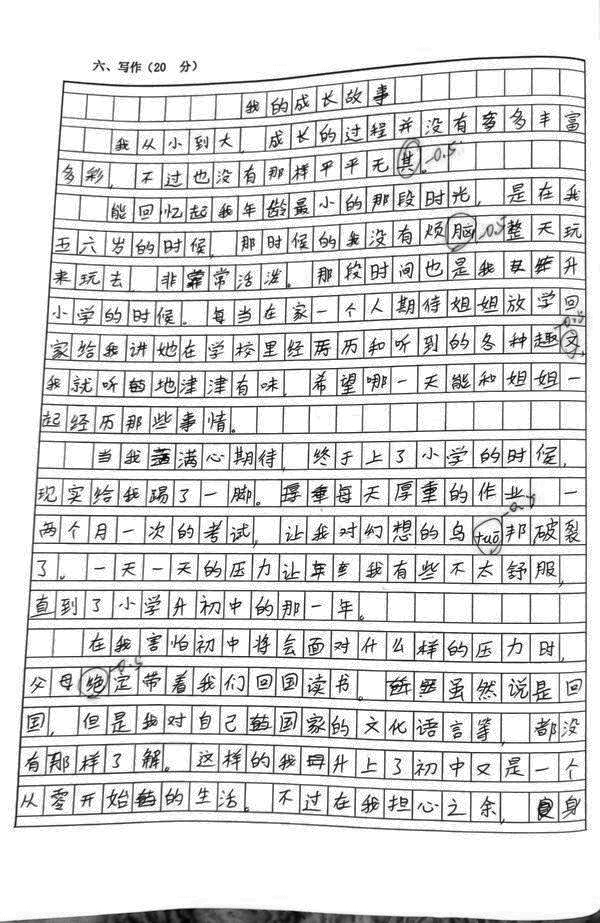 六、写作（20 分）
我的成长故事
我从小到大，成长的过程并没有多多丰富
多彩，不过也没有那样平平无其。-0.5
能回忆起我年龄最小的那段时光，是在我
五六岁的时候，那时候的我没有烦脑，-0.5整天玩
来玩去，非常活泼。那段时间也是我升
小学的时候。每当在家一个人期待姐姐放学回
家给我讲她在学校里经历和听到的各种趣文，-0.5
我就听地津津有味，希望哪一天能和姐姐一
起经历那些事情。
当我满心期待，终于上了小学的时候，
现实给我踢了一脚。每天厚重的作业，一
两个月一次的考试，让我对幻想的乌tuō邦破裂
了。一天一天的压力让我有些不太舒服，
直到了小学升初中的那一年。
在我害怕初中将会面对什么样的压力时，
父母绝定带着我们回国读书。-0.5虽然说是回
国，但是我对自己国家的文化语言等，都没
有那样了解。这样的我升上了初中又是一个
从零开始的生活。不过在我担心之余，身